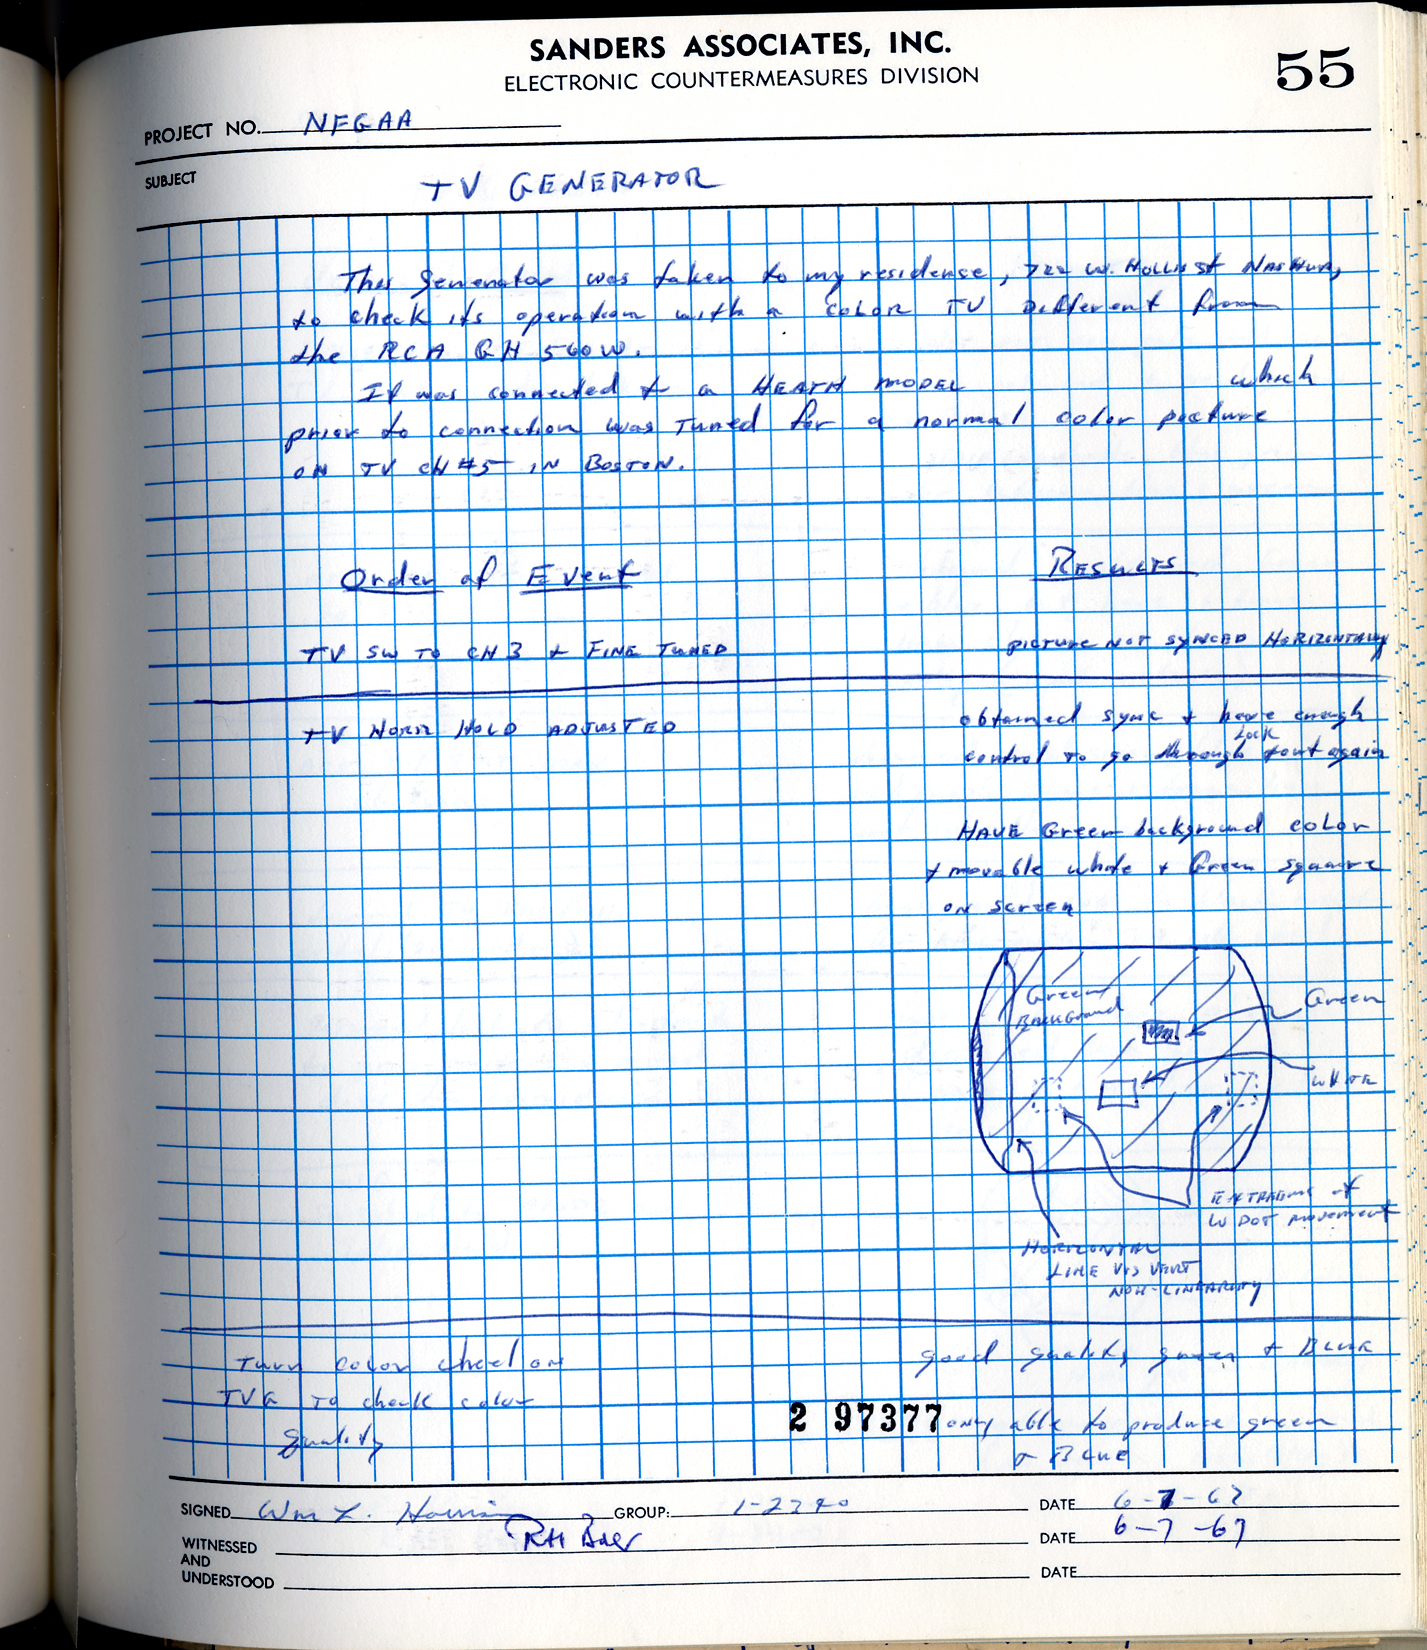 SANDERS ASSOCIATES, INC.
ELECTRONIC COUNTERMEASURES DIVISION
55
PROJECT NO. NFGAA
SUBJECT
TV GENERATOR
This Generator was taken to my residense, 722 W. HOLLIS St NASHUA,
to check its operation with a COLOR TV Different from
the RCA GH 560W.
It was connected to a HEATH MODEL which
prior to connection was Tuned for a normal color picture
ON TV CH #5 IN BOSTON.
Order of Event
RESULTS
TV SW TO CH 3 + FINE TUNED
PICTURE NOT SYNCED HORIZONTALLY
TV HORIZ HOLD ADJUSTED
obtained sync + have enough
control to go through Lock + out again
HAVE Green background color
+ movable white + Green square
on screen
Green
Background
Green
WHITE
EXTREME of
W DOT movement
HORIZONTAL
LINE VIS VERT
NON-LINEARITY
Turn color wheel on
TVG TO check color
quality
good quality green + BLUE
2 97377
only able to produce green
+ BLUE
SIGNED Wm L. Harrison GROUP: 1-2240 DATE 6-7-67
WITNESSED
AND
UNDERSTOOD
RH Baer DATE 6-7-67
DATE